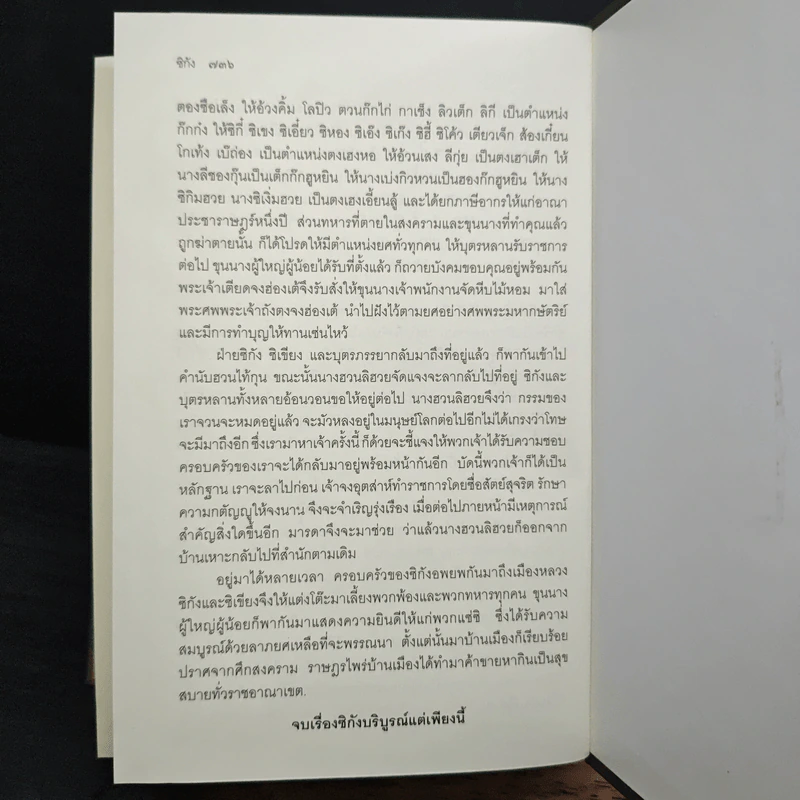 ซิกัง ๗๓๖
ตองซือเล็ง ให้อ้วงคิ้ม โลปิว ตวนก๊กไก่ กาเซ็ง ลิวเต็ก ลิกี เป็นตำแหน่ง
ก๊กก๋ง ให้ซิกี๋ ซิเซง ซิเอี๋ยว ซิหอง ซิเอ๊ง ซิเก๊ง ซิฮี้ ซิโค้ว เตียวเจ็ก ส้องเกี๋ยน
โกเท้ง เบ๊ถ่อง เป็นตำแหน่งตงเฮงหอ ให้อ้วนเสง ลีกุ่ย เป็นตงเฮาเต็ก ให้
นางลีซองกุ๊นเป็นเต็กก๊กฮูหยิน ให้นางเบ่งกิวหวนเป็นฮองก๊กฮูหยิน ให้นาง
ซิกิมฮวย นางซิเงิ่มฮวย เป็นตงเฮงเอี้ยนลู้ และได้ยกภาษีอากรให้แก่อาณา
ประชาราษฎร์หนึ่งปี ส่วนทหารที่ตายในสงครามและขุนนางที่ทำคุณแล้ว
ถูกฆ่าตายนั้น ก็ได้โปรดให้มีตำแหน่งยศทั่วทุกคน ให้บุตรหลานรับราชการ
ต่อไป ขุนนางผู้ใหญ่ผู้น้อยได้รับที่ตั้งแล้ว ก็ถวายบังคมขอบคุณอยู่พร้อมกัน
พระเจ้าเตียดจงฮ่องเต้จึงรับสั่งให้ขุนนางเจ้าพนักงานจัดหีบไม้หอม มาใส่
พระศพพระเจ้าถังตงจงฮ่องเต้ นำไปฝังไว้ตามยศอย่างศพพระมหากษัตริย์
และมีการทำบุญให้ทานเซ่นไหว้
ฝ่ายซิกัง ซิเซียง และบุตรภรรยากลับมาถึงที่อยู่แล้ว ก็พากันเข้าไป
คำนับฮวนไท้กุน ขณะนั้นนางฮวนลิฮวยจัดแจงจะลากลับไปที่อยู่ ซิกังและ
บุตรหลานทั้งหลายอ้อนวอนขอให้อยู่ต่อไป นางฮวนลิฮวยจึงว่า กรรมของ
เราจวนจะหมดอยู่แล้ว จะมัวหลงอยู่ในมนุษย์โลกต่อไปอีกไม่ได้เกรงว่าโทษ
จะมีมาถึงอีก ซึ่งเรามาหาเจ้าครั้งนี้ ก็ด้วยจะชี้แจงให้พวกเจ้าได้รับความชอบ
ครอบครัวของเราจะได้กลับมาอยู่พร้อมหน้ากันอีก บัดนี้พวกเจ้าก็ได้เป็น
หลักฐาน เราจะลาไปก่อน เจ้าจงอุตส่าห์ทำราชการโดยซื่อสัตย์สุจริต รักษา
ความกตัญญูให้จงนาน จึงจะจำเริญรุ่งเรือง เมื่อต่อไปภายหน้ามีเหตุการณ์
สำคัญสิ่งใดขึ้นอีก มารดาจึงจะมาช่วย ว่าแล้วนางฮวนลิฮวยก็ออกจาก
บ้านเหาะกลับไปที่สำนักตามเดิม
อยู่มาได้หลายเวลา ครอบครัวของซิกังอพยพกันมาถึงเมืองหลวง
ซิกังและซิเซียงจึงให้แต่งโต๊ะมาเลี้ยงพวกพ้องและพวกทหารทุกคน ขุนนาง
ผู้ใหญ่ผู้น้อยก็พากันมาแสดงความยินดีให้แก่พวกแซ่ซิ ซึ่งได้รับความ
สมบูรณ์ด้วยลาภยศเหลือที่จะพรรณนา ตั้งแต่นั้นมาบ้านเมืองก็เรียบร้อย
ปราศจากศึกสงคราม ราษฎรไพร่บ้านเมืองได้ทำมาค้าขายหากินเป็นสุข
สบายทั่วราชอาณาเขต.
จบเรื่องซิกังบริบูรณ์แต่เพียงนี้